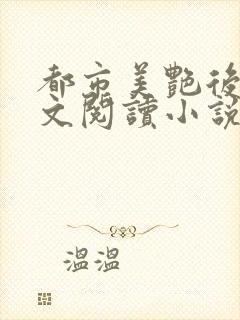 都市美艷後
文閱讀小說
溫溫